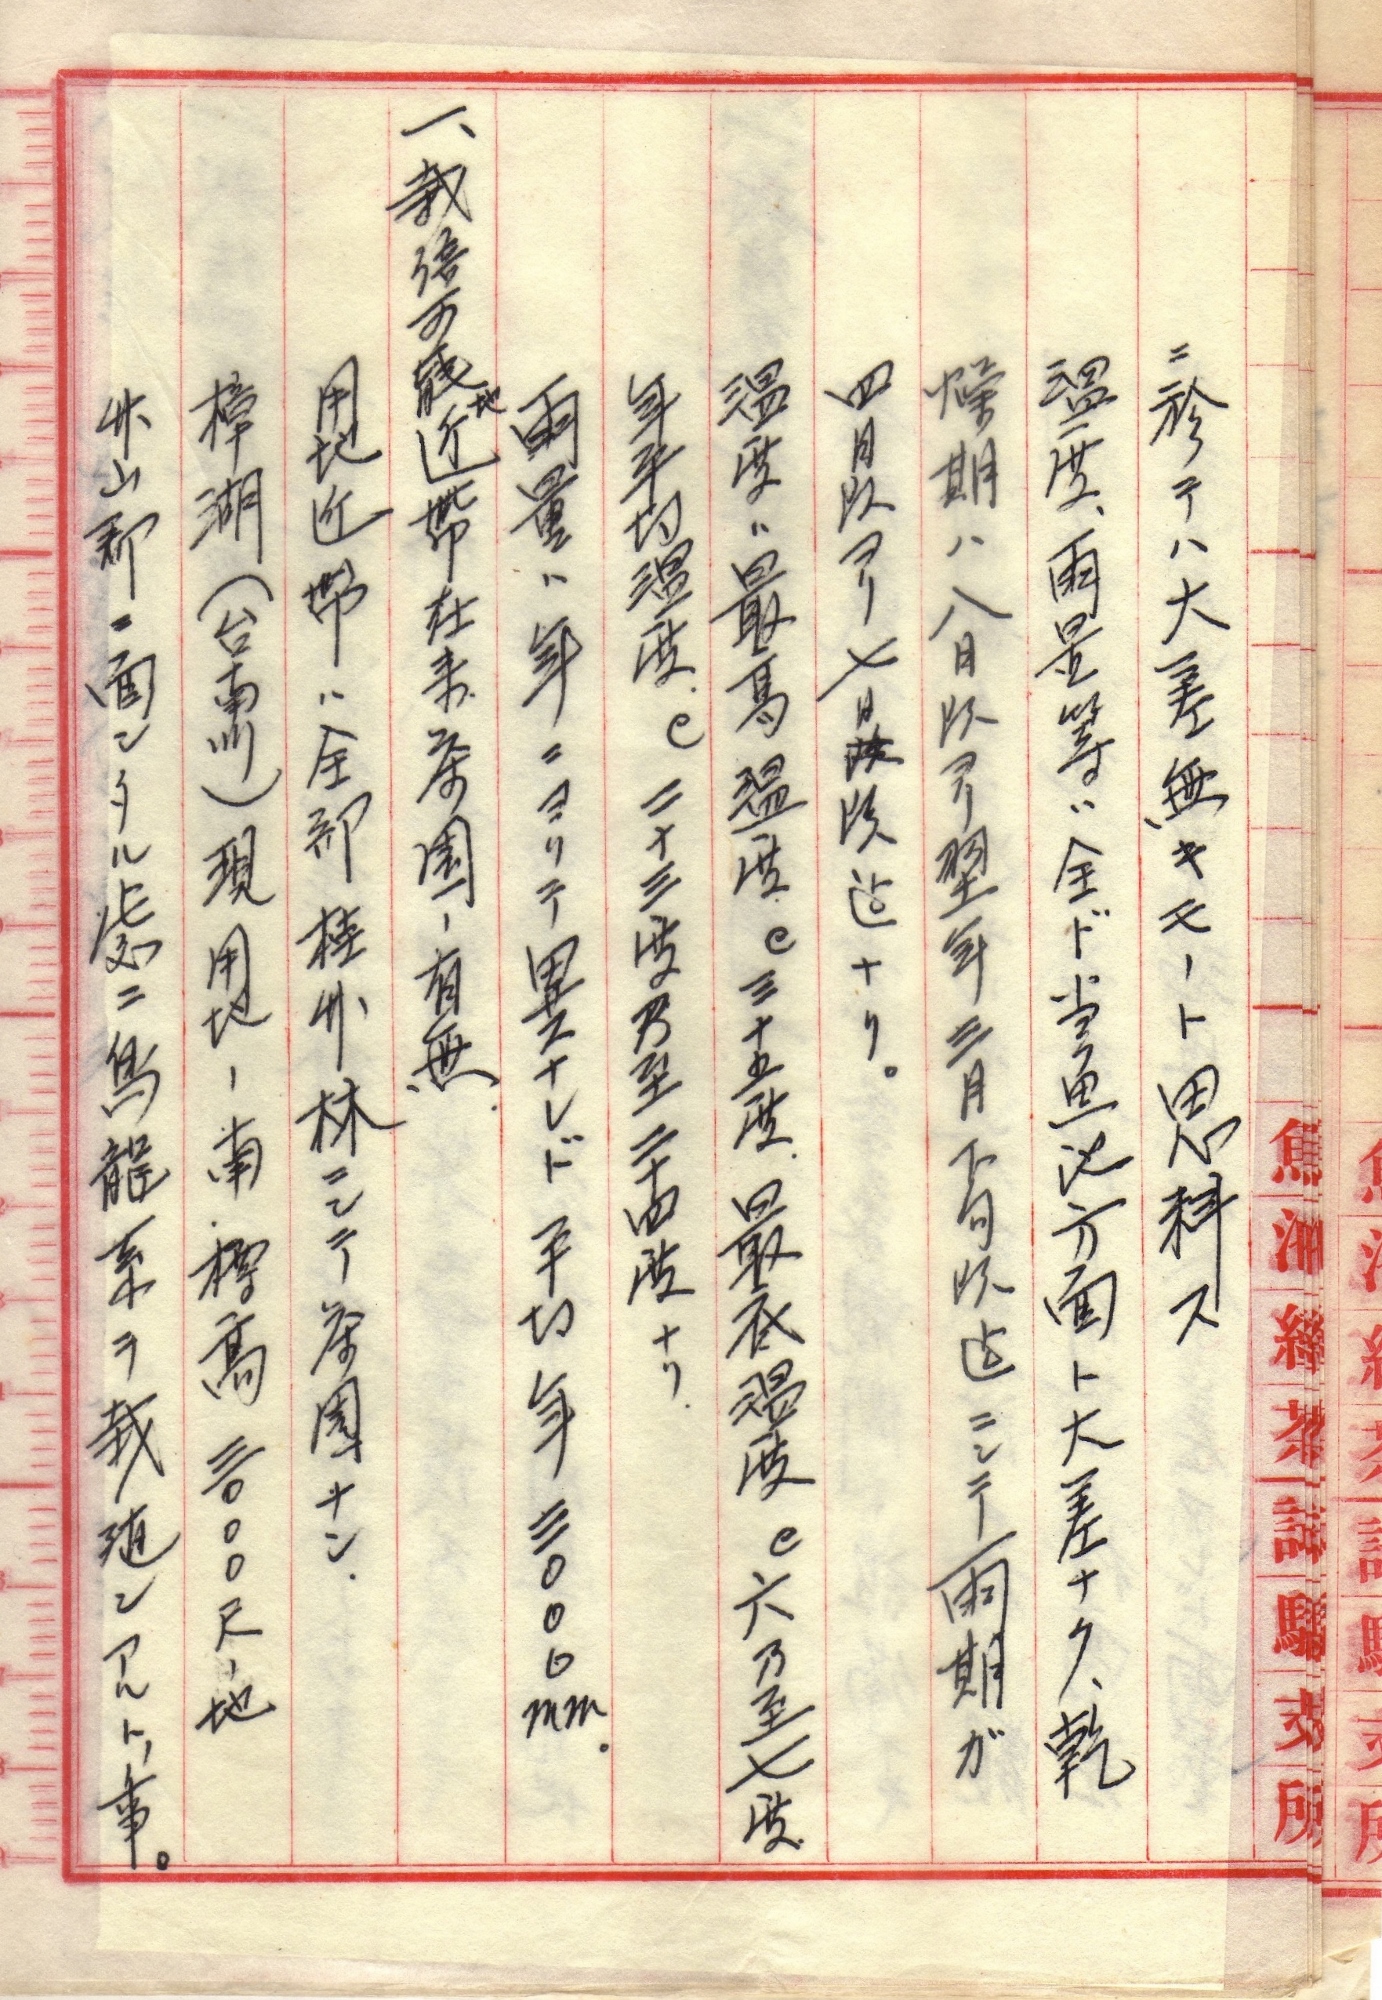 ニ於テハ大差無キモノト思料ス
温度、雨量等ハ全ド當魚池方面ト大差ナク、乾
燥期ハ八月頃ヨリ翌年三月下旬頃迄ニシテ雨期ガ
四月頃ヨリ七月頃迄ナリ。
温度ハ最高温度C三十五度、最低温度C六乃至七度
年平均温度C二十三度乃至二十四度ナリ.
雨量ハ年ニヨリテ異ナレド平均年三〇〇〇mm.
一、栽培可能地近帶在来茶園ノ有無
用地近帶ハ全部桂竹林ニシテ茶園ナシ.
樟湖(台南州)現用地ノ南.標高三〇〇〇尺ノ地
竹山郡ニ面シタル處ニ烏龍系ヲ栽植シアルトノ事。
魚池紅茶試驗支所